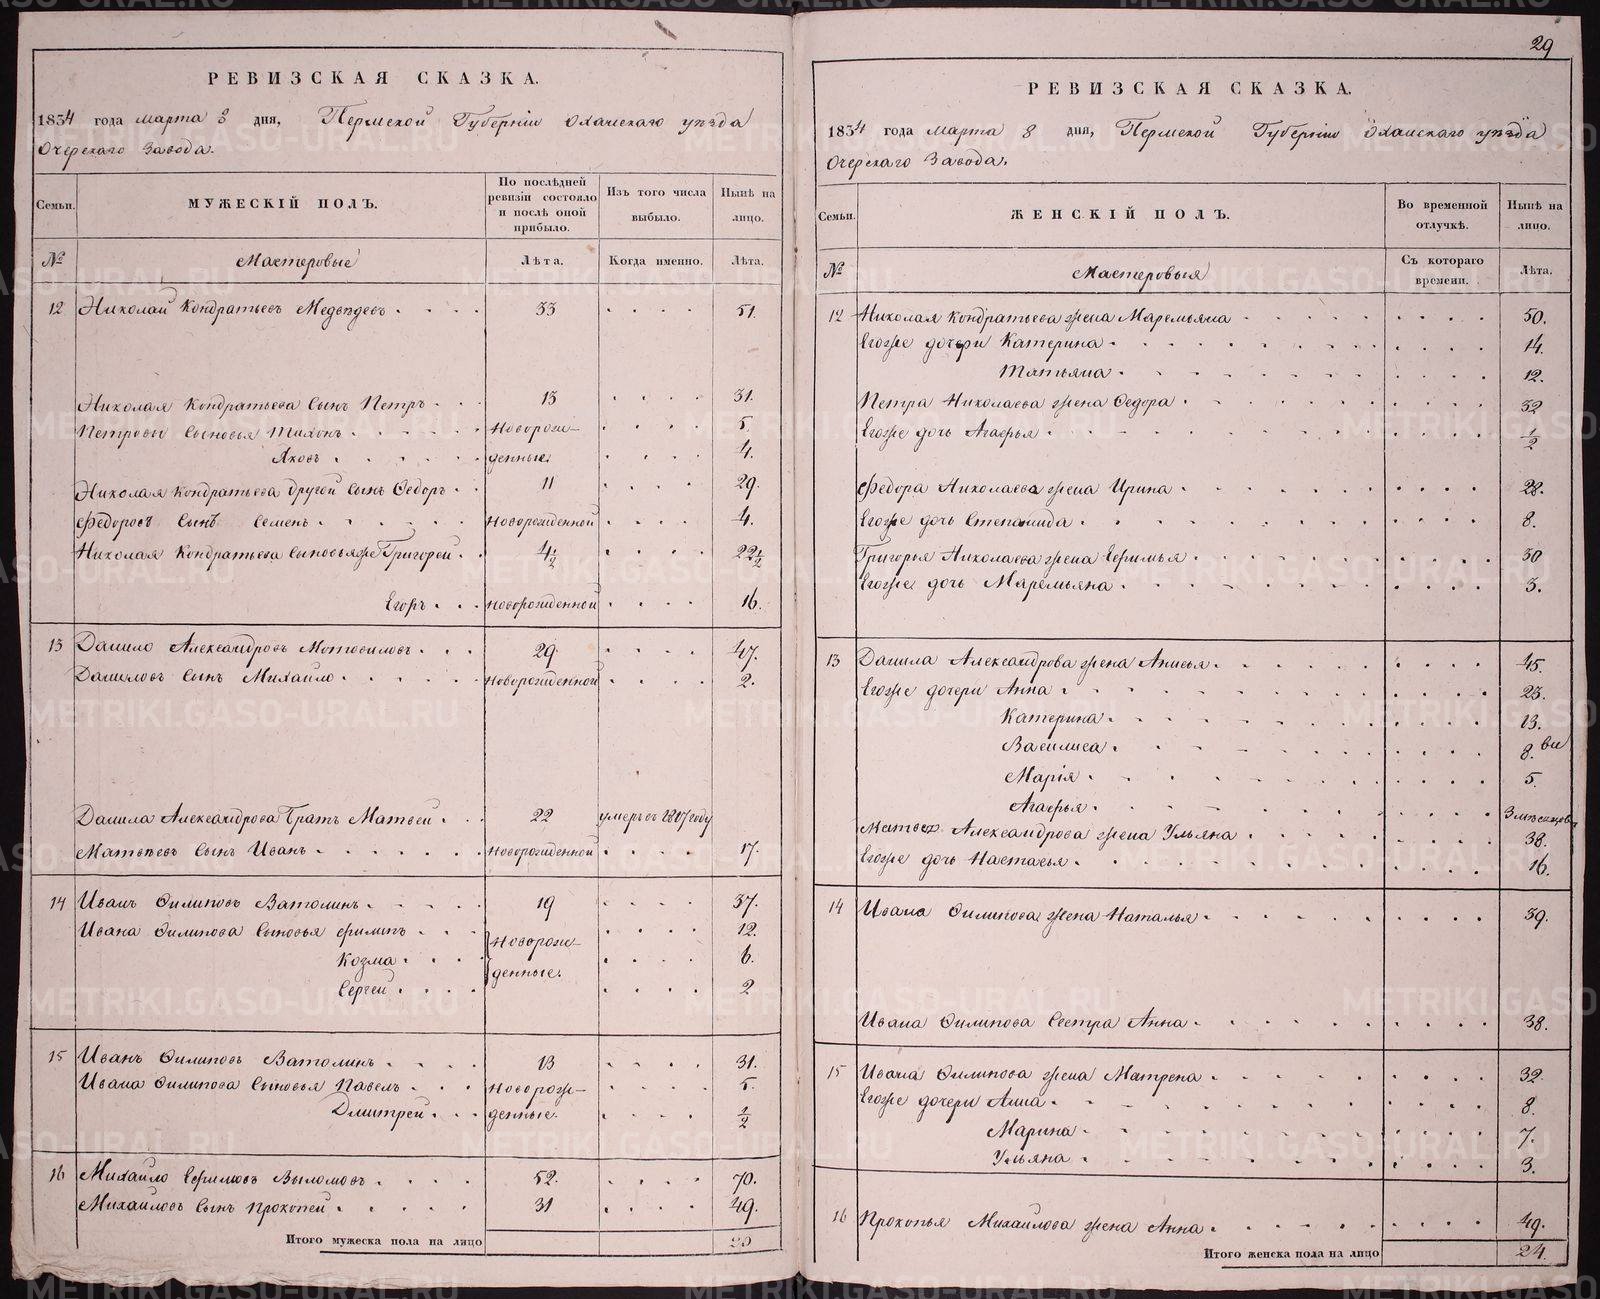 РЕВИЗСКАЯ СКАЗКА.
1834 года марта 8 дня, Пермской Губернiи Оханскаго уѣзда
Очерскаго Завода.
Семьи. МУЖЕСКIЙ ПОЛЪ. По послѣдней ревизiи состояло и послѣ оной прибыло. Изъ того числа выбыло. Нынѣ на лицо.
№ Мастеровые Лѣта. Когда именно. Лѣта.
12 Николай Кондратьевъ Медвѣдевъ 33 51.
Николая Кондратьева Сынъ Петръ 13 31.
Петровы Сыновья Тихонъ Новорож- 5.
Яковъ денные. 4.
Николая Кондратьева Другой Сынъ Ѳедоръ 11 29.
Федоровъ Сынъ Семенъ Новорожденной 4.
Николая Кондратьева Сыновьяже Григорей 4 1/2 22 1/2
Егоръ Новорожденной 16.
13 Данило Александровъ Мотовиловъ 29 47.
Даниловъ Сынъ Михайло Новорожденной 2.
Данила Александрова Братъ Матвей 22 умеръ въ 1827 году
Матвѣевъ Сынъ Иванъ Новорожденной 17.
14 Иванъ Филиповъ Ватолинъ 19 37.
Ивана Филипова Сыновья Филипъ Новорож- 12.
Козма денные. 6.
Сергей 2
15 Иванъ Филиповъ Ватолинъ 13 31.
Ивана Филипова Сыновья Павелъ Новорож- 5.
Дмитрей денные. 1/2
16 Михайло Ефимовъ 52. 70.
Михайловъ Сынъ Прокопей 31 49.
Итого мужеска пола на лицо 20
29
РЕВИЗСКАЯ СКАЗКА.
1834 года марта 8 дня, Пермской Губернiи Оханскаго уѣзда
Очерскаго Завода.
Семьи. ЖЕНСКIЙ ПОЛЪ. Во временной отлучкѣ. Нынѣ на лицо.
№ Мастеровыя Съ котораго времени. Лѣта.
12 Николая Кондратьева жена Маремьяна 50.
Егоже дочери Катерина 14.
Татьяна 12.
Петра Николаева жена Ѳедора 32
Егоже дочь Агафья 1/2
Федора Николаева жена Ирина 28.
Егоже дочь Степанида 8.
Григорья Николаева жена Ефимья 30
Егоже дочь Маремьяна 3.
13 Данила Александрова жена Анисья 45.
Егоже дочери Анна 23.
Катерина 13.
Василиса 8.
Марiя 5.
Агафья 3 мѣсяцовъ
Матвея Александрова жена Ульяна 38.
Егоже дочь Настасья 16.
14 Ивана Филипова жена Наталья 39.
Ивана Филипова Сестра Анна 38.
15 Ивана Филипова жена Матрена 32.
Егоже дочери Анна 8.
Марина 7.
Ульяна 3.
16 Прокопья Михайлова жена Анна 49.
Итого женска пола на лицо 24.
METRIKI.GASO-URAL.RU